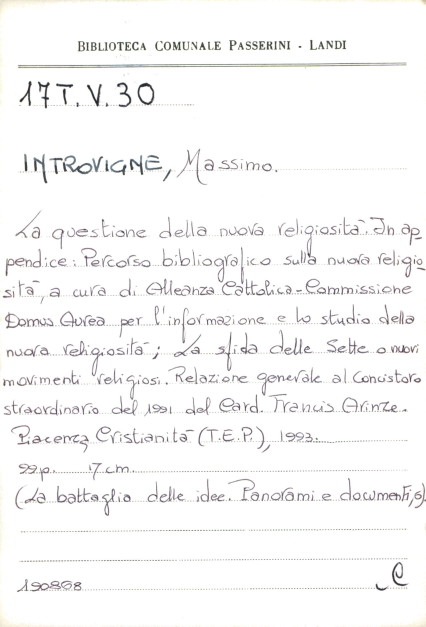 BIBLIOTECA COMUNALE PASSERINI - LANDI
17T.V.30
INTROVIGNE, Massimo.
La questione della nuova religiosità. In ap-
pendice: Percorso bibliografico sulla nuova religio-
sità, a cura di Alleanza Cattolica - Commissione
Domus Aurea per l'informazione e lo studio della
nuova religiosità; La sfida delle Sette o nuovi
movimenti religiosi. Relazione generale al Concistoro
straordinario del 1991 del Card. Francis Arinze.
Piacenza Cristianità (T.E.P.), 1993.
99p. 17 cm.
(La battaglia delle idee. Panorami e documenti,
190868